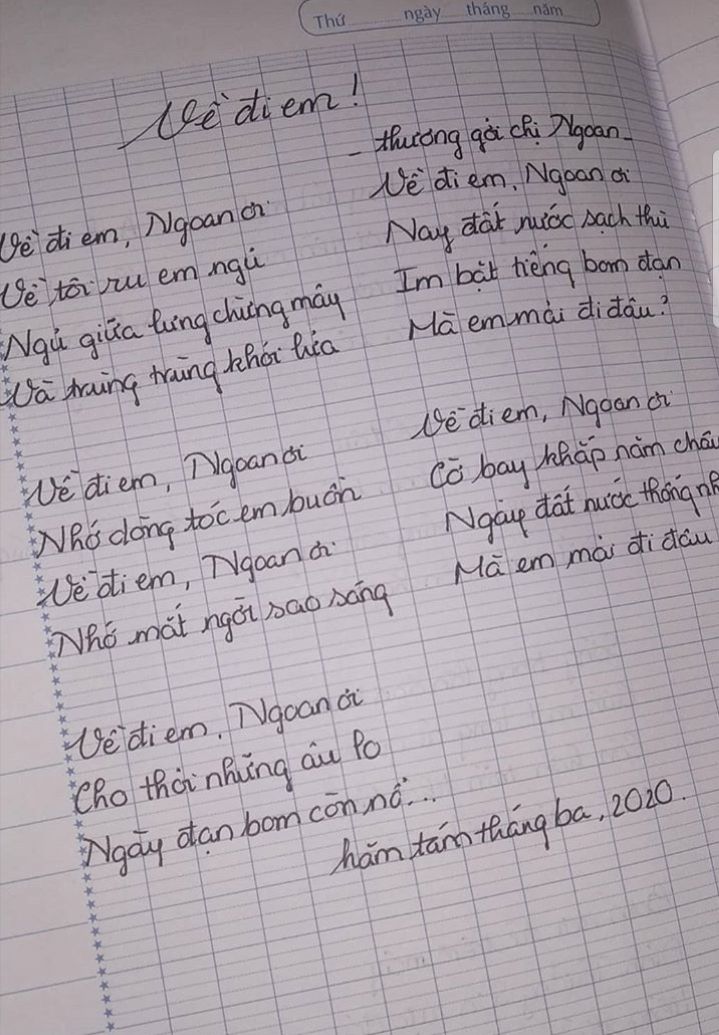 Thứ ngày tháng năm
Về đi em!
- thương gửi chị Ngoan -
Về đi em, Ngoan ơi
Về tôi ru em ngủ
Ngủ giữa lưng chừng mây
Và trùng trùng khói lửa
Về đi em, Ngoan ơi
Nhớ dòng tóc em buồn
Về đi em, Ngoan ơi
Nhớ mắt ngời sao sáng
Về đi em, Ngoan ơi
Cho thôi những âu lo
Ngày đạn bom còn nổ...
Về đi em, Ngoan ơi
Nay đất nước sạch thù
Im bặt tiếng bom đạn
Mà em mải đi đâu?
Về đi em, Ngoan ơi
Cờ bay khắp năm châu
Ngày đất nước thống nh
Mà em mải đi đâu
hăm tám tháng ba, 2020.